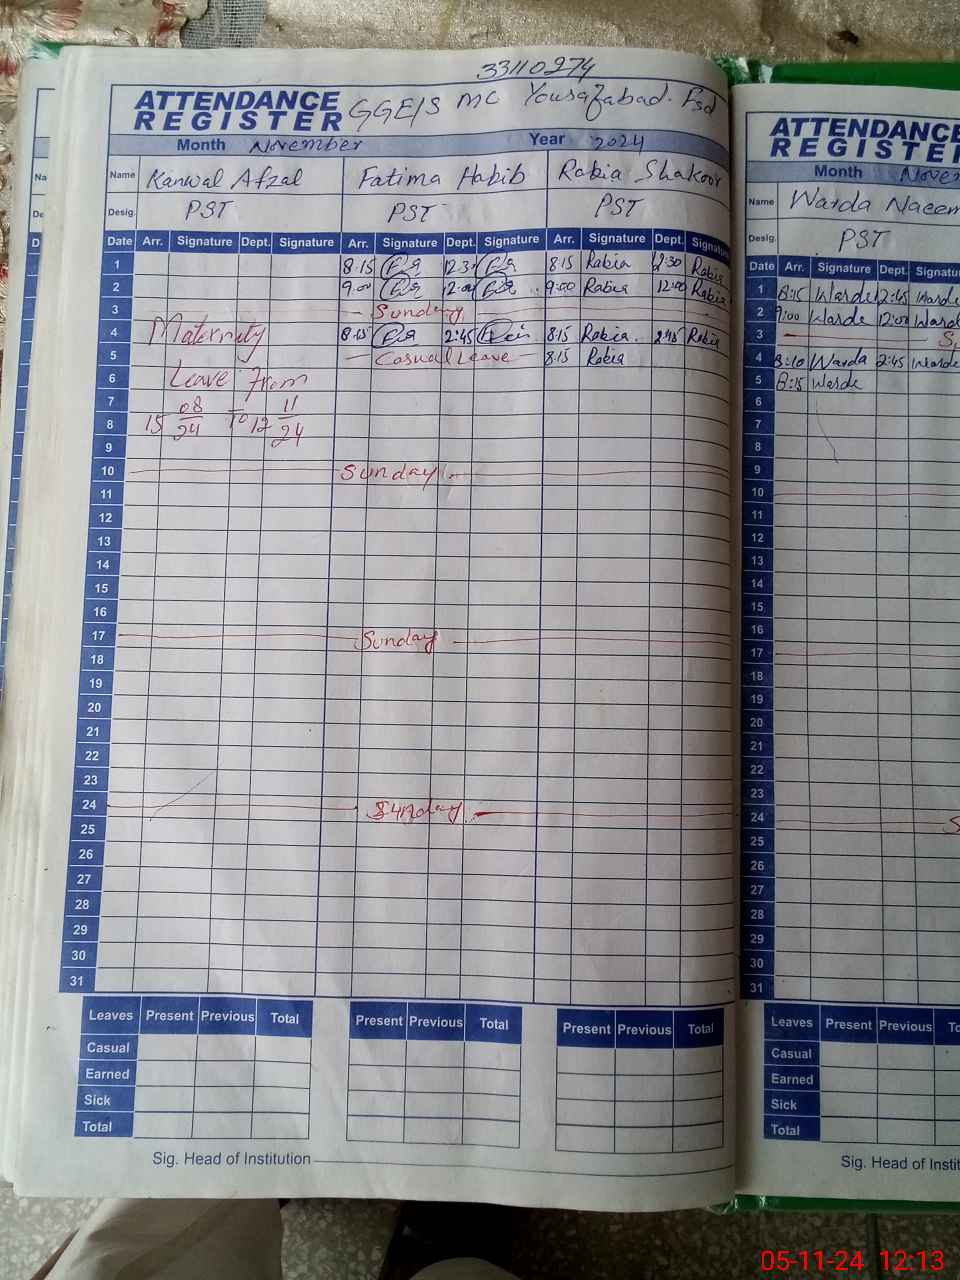 33110274
ATTENDANCE REGISTER GGE/S MC Yousafabad. Fsd
Month November Year 2024
Name Kanwal Afzal Fatima Habib Rabia Shakoor
Desig. PST PST PST
Date Arr. Signature Dept. Signature Arr. Signature Dept. Signature Arr. Signature Dept. Signature
1 8:15 12:30 8:15 Rabia 12:30 Rabia
2 9:00 12:00 9:00 Rabia 12:00 Rabia
3 Sunday
4 Maternity 8:15 2:45 8:15 Rabia 2:45 Rabia
5 Casual Leave 8:15 Rabia
6 Leave From
7 08 11
8 15 24 To 12 24
9
10 Sunday
11
12
13
14
15
16
17 Sunday
18
19
20
21
22
23
24 Sunday
25
26
27
28
29
30
31
Leaves Present Previous Total Present Previous Total Present Previous Total
Casual
Earned
Sick
Total
Sig. Head of Institution
ATTENDANCE
REGISTER
Month Novem
Name Warda Naeem
Desig. PST
Date Arr. Signature Dept. Signatu
1 8:15 Warda 2:45 Warda
2 9:00 Warda 12:00 Warda
3 S
4 8:10 Warda 2:45 Warda
5 8:15 Warda
6
7
8
9
10
11
12
13
14
15
16
17
18
19
20
21
22
23
24 S
25
26
27
28
29
30
31
Leaves Present Previous To
Casual
Earned
Sick
Total
Sig. Head of Instit
05-11-24 12:13